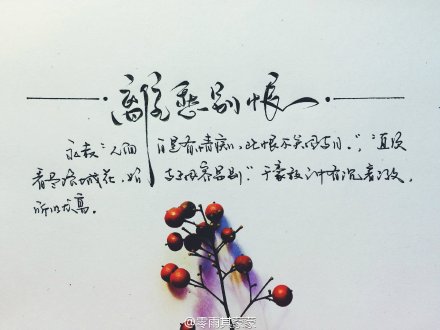 離愁别恨
永叔“人间自是有情痴，此恨不关风与月。”，“直须
看尽洛城花，始与东风容易别”于豪放之中有沉着之致，
所以尤高。
@零雨其蒙蒙